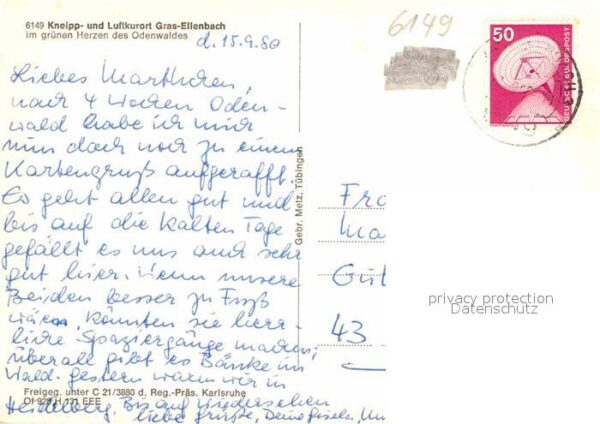 6149 Kneipp- und Luftkurort Gras-Ellenbach
im grünen Herzen des Odenwaldes
d. 15.9.80
Liebes Marthchen,
nach 4 Wochen Oden-
wald habe ich mich
nun doch noch zu einem
Kartengruß aufgerafft.
Es geht allen gut und
bis auf die kalten Tage
gefällt es uns auch sehr
gut hier. Wenn unsere
Beiden besser zu Fuß
wären, könnten sie herr-
liche Spaziergänge machen,
überall gibt es Bänke im
Wald. Gestern waren wir in
Freigeg. unter C 21/3880 d. Reg.-Präs. Karlsruhe
Heidelberg. Bis auf Wiedersehen
liebe Grüße, Deine Gisela,
Gebr. Metz, Tübingen
6149
50
DEUTSCHE BUNDESPOST
Fra
Ma
Gut
43
privacy protection
Datenschutz